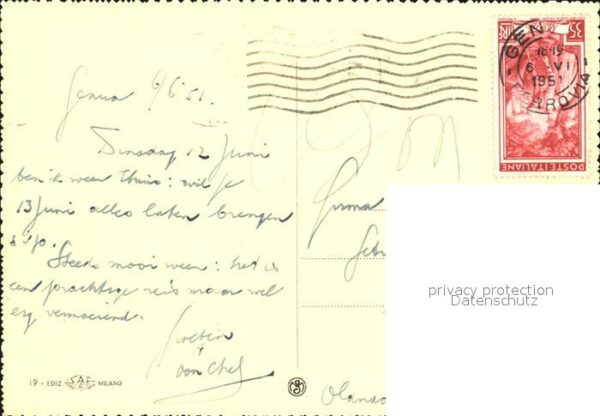 Genua 6/6 51.
Dinsdag 12 Juni
ben ik weer thuis: wil je
13 Juni alles laten brengen
s.v.p.
Steeds mooi weer: het is
een prachtige reis maar wel
erg vermoeiend.
Groeten
van
19 - EDIZ SAF MILANO
GEN
18-19
6 VI
1951
FERROVIA
35 LIRE
POSTE ITALIANE
Firma
privacy protection
Datenschutz